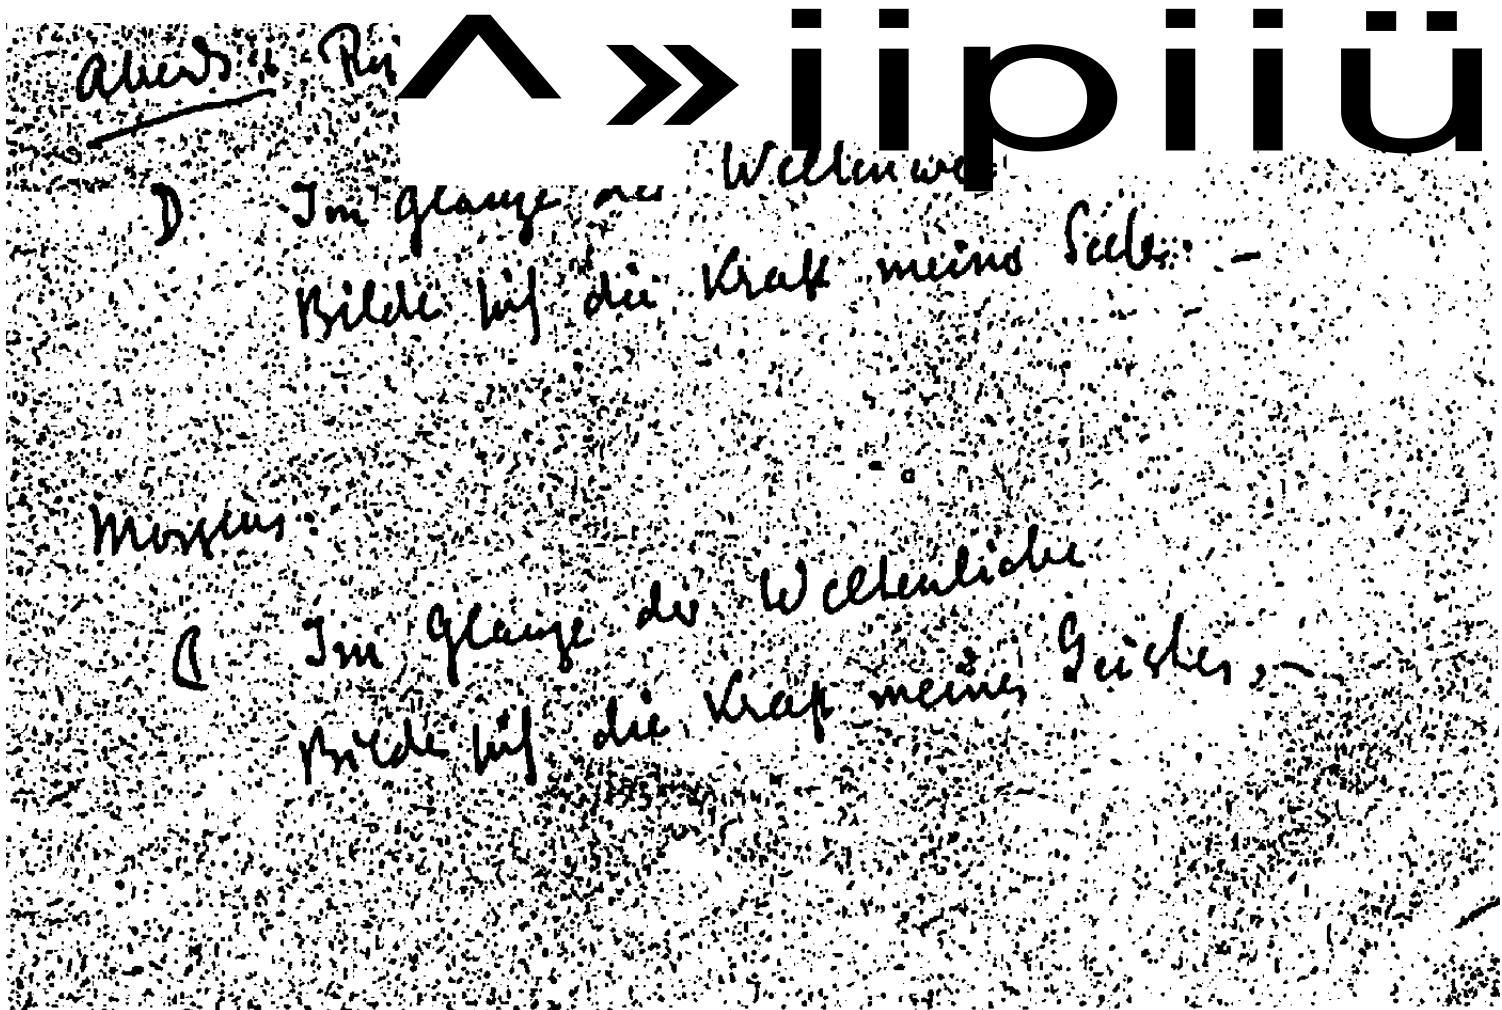 Abends: ^»iipiiü
Im Glanze der
Bilde sich die Kraft meiner Seele. –
Morgens:
Im Glanze der Weltenliebe
Bilde sich die Kraft meines Geistes, –